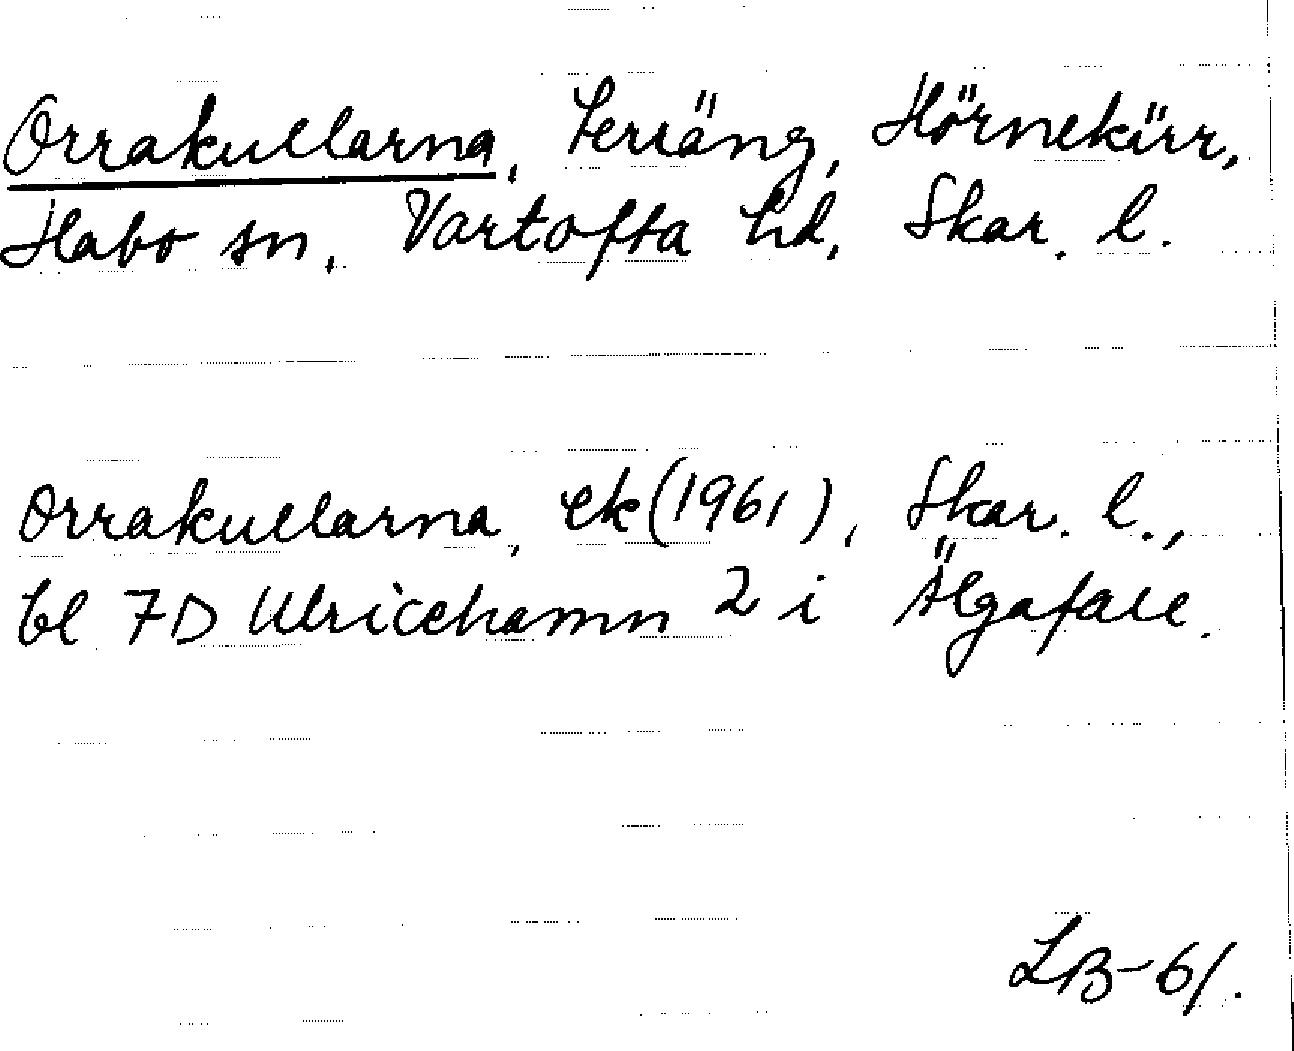 Orrakullarna, terräng, Hörnekärr,
Habo sn, Vartofta hd, Skar. l.
Orrakullarna, ek (1961), Skar. l.,
bl 7D Ulricehamn 2 i Älgafall.
LB-61.